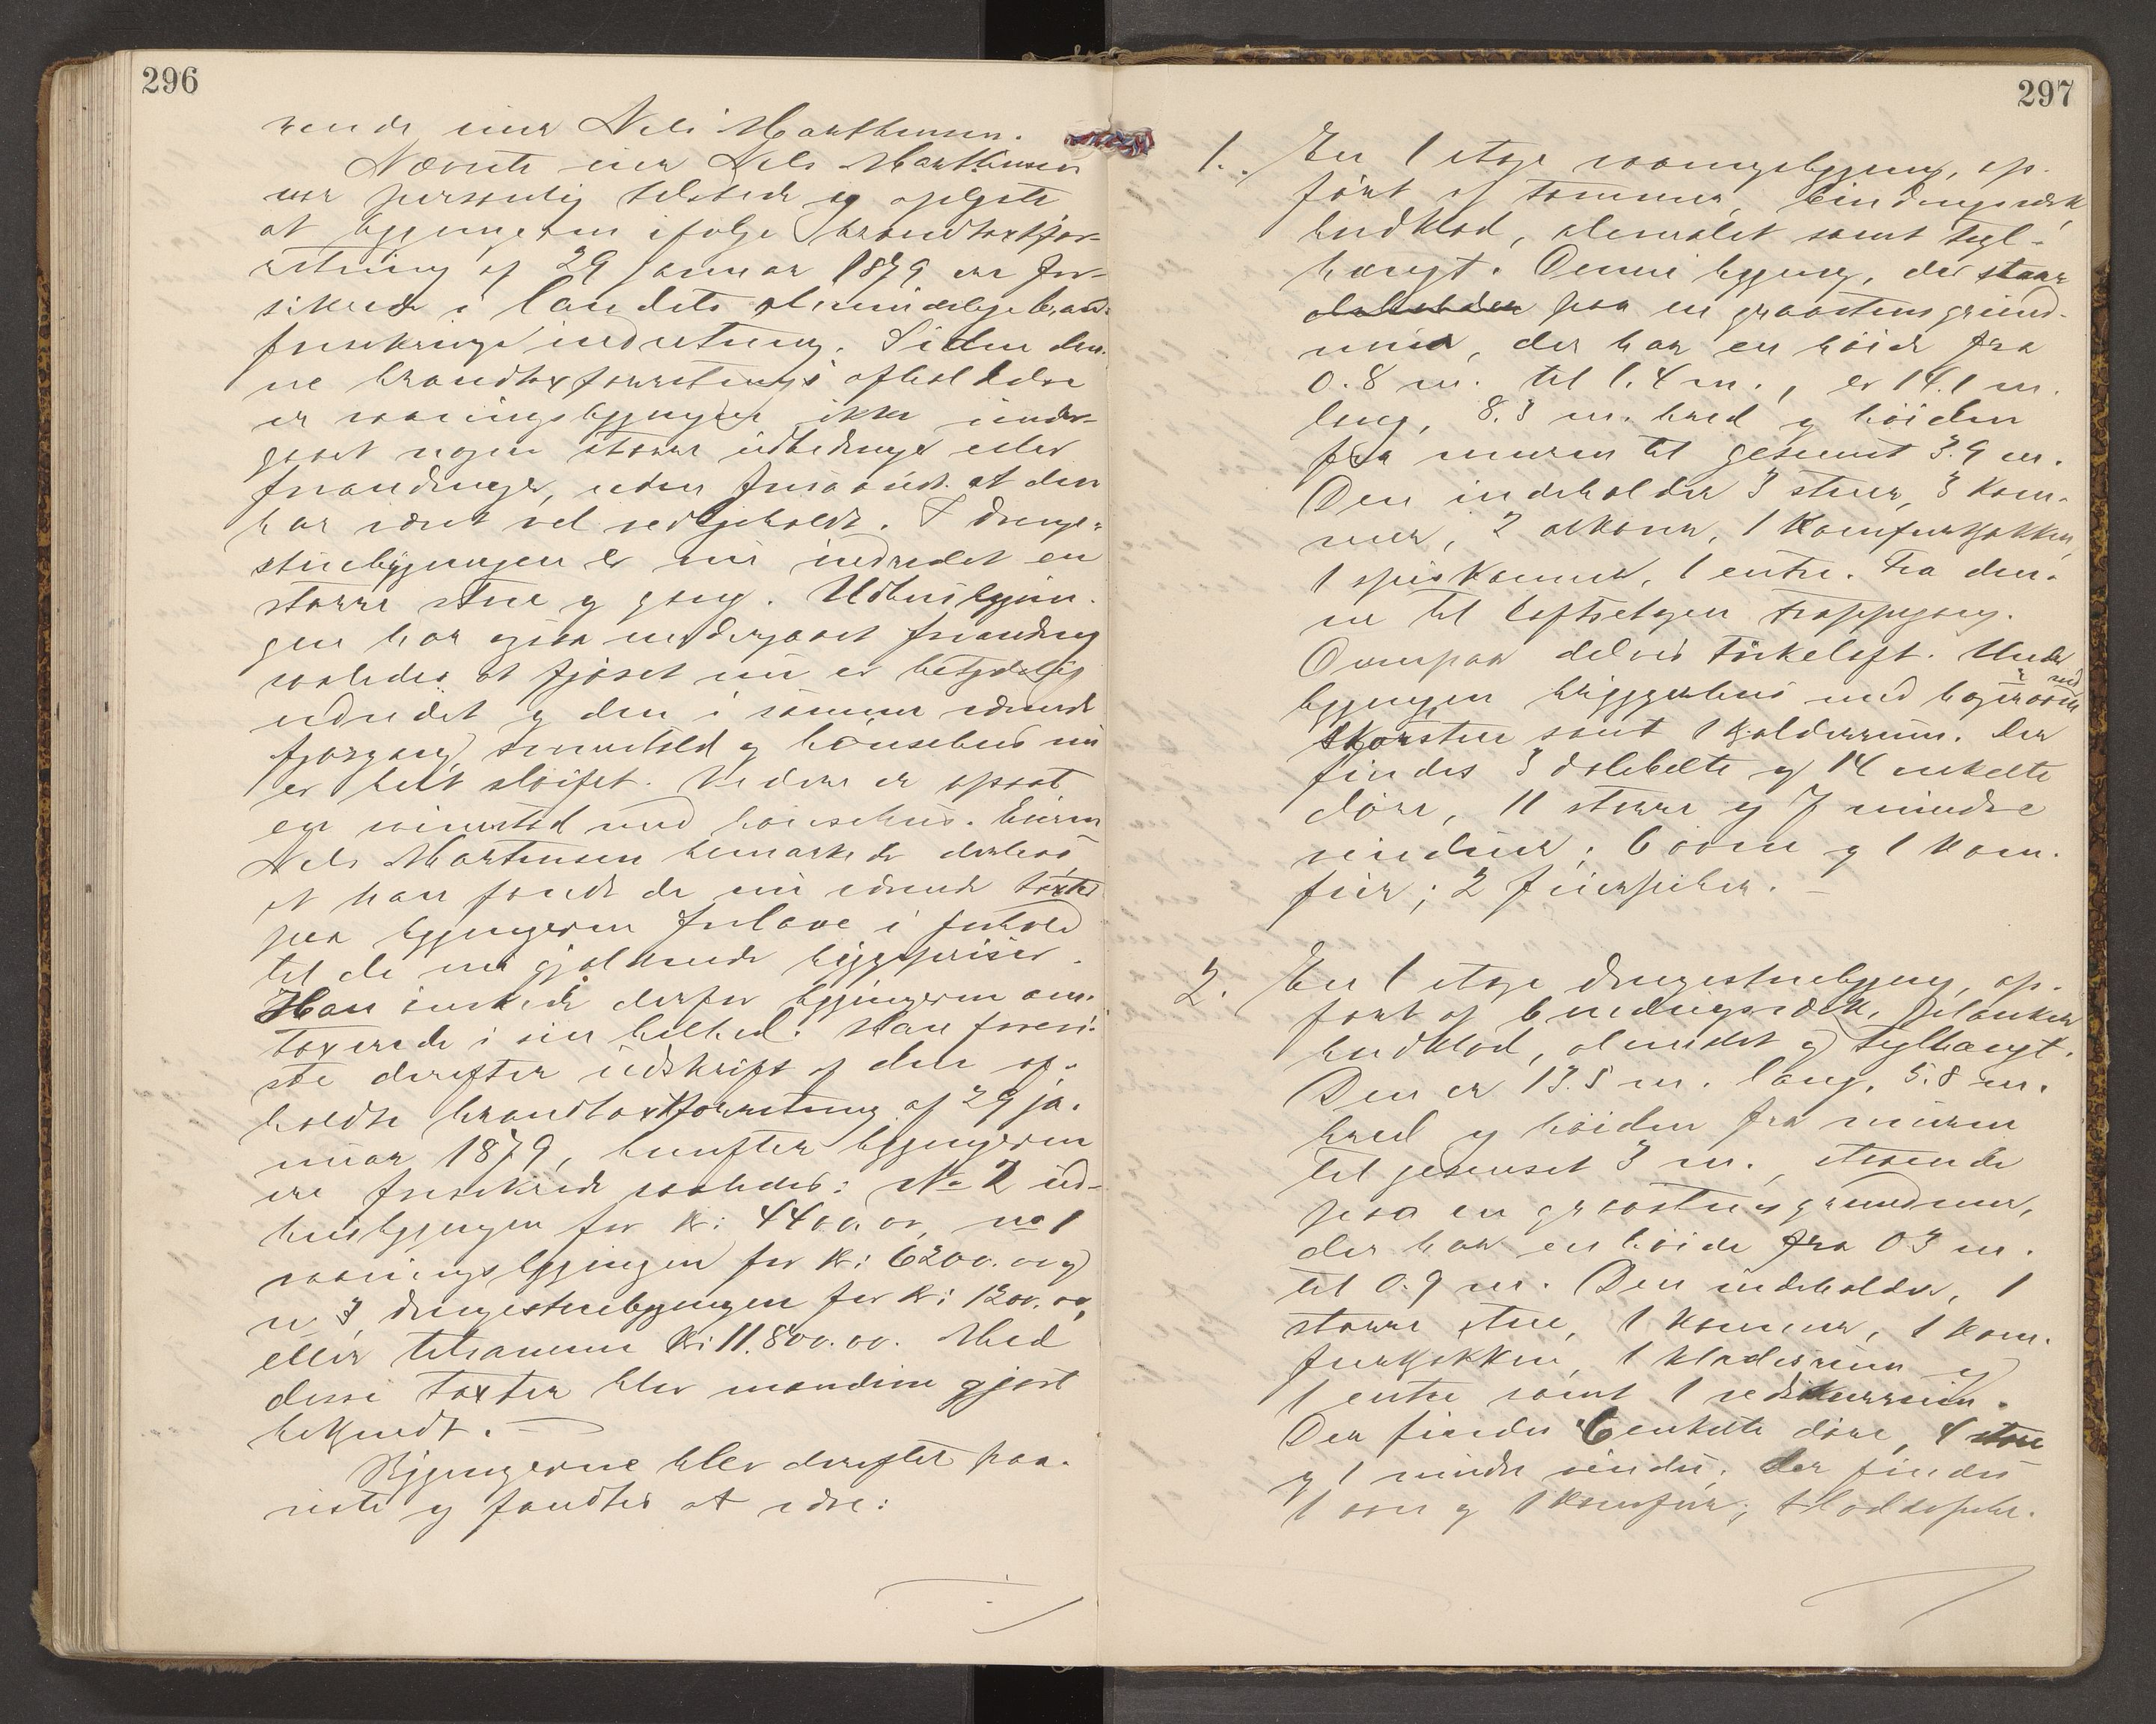 296
rende eier Nels Marthinsen.
Nævnte eier Nels Marthinsen
var personlig tilstede og oplyste
at bygningerne ifølge brandtaxtfor-
retning af 29 januar 1879 er for-
sikrede i landets almindelige brand-
forsikrings indretning. Siden den-
ne brandtaxforretnings afholdelse
er vaaningsbygningen ikke under-
gaaet nogen større udbedringer eller
forandringer, uden forsaavidt at den
har været vel vedligeholdt. I drenge-
stuebygningen er nu indredet en
større stue og gang. Udhusbygnin-
gen har ogsaa undergaaet forandring
saaledes at fjøset nu er betydelig
udvidet og den i samme værende
forgang, svinestald og hønsehus nu
er helt sløifet. Videre er opsat
egen svinestad med hønsehus. Eieren
Nels Martinsen bemærkede derhos
at han fandt de nu værende taxter
paa bygningerne for lave i forhold
til de nu gjældende byggepriser.
Han ønskede derfor bygningerne om-
taxerede i sin helhed. Man forevi-
ste derefter udskrift af den af-
holdte brandtaxtforretning af 29 ja-
nuar 1879, hvorefter bygningerne
ere forsikrede saaledes: No 2 ud-
husbygningen for kr: 4400.00, no 1
vaaningsbygningen for kr: 6200.00 og
no 3 drengestuebygningen for kr: 1200.00,
eller tilsammen kr: 11.800.00. Med
disse taxter blev mændene gjort
bekjendt.
Bygningerne blev derefter paa-
viste og fandtes at være:
297
1. En 1 etage vaaningsbygning, op-
ført af tømmer, bindingsværk,
bordklæd, oliemalet samt tegl-
hængt. Denne bygning, der staar
paa en graastensgrund-
mur, der har en høide fra
0.8 m. til 1.4 m., er 14.1 m.
lang, 8.3 m. bred og høiden
fra muren til gesimset 3.9 m.
Den indeholder 3 stuer, 3 kam-
mer, 2 alkover, 1 komfurkjøkken,
1 spiskammer, 1 entre. Fra den-
ne til loftsetagen trappegang.
Ovenpaa delvis tørkeloft. Under
bygningen bryggerhus med bagerovn
i ved
skorsten samt 1 kjælderrum. Der
findes 3 dobbelte og 14 enkelte
døre, 11 større og 7 mindre
vinduer; 6 ovne og 1 kom-
fur; 2 fuerpiber.
2. En 1 etage drengestuebygning, op-
ført af bindingsværk, planker
bordklæd, oliemalet og teglhængt.
Den er 13.5 m. lang, 5.8 m.
bred og høiden fra muren
til gesimset 3 m., staaende
paa en graastens grundmur,
der har en høide fra 03 m.
til 0.9 m. Den indeholder, 1
større stue, 1 kammer, 1 kom-
furkjøkken, 1 klæderum og
1 entre samt 1 vedskurrum.
Der findes 6 enkelte døre, 4 store
og 1 mindre vindu. Der findes
1 ovn og 1 komfur;